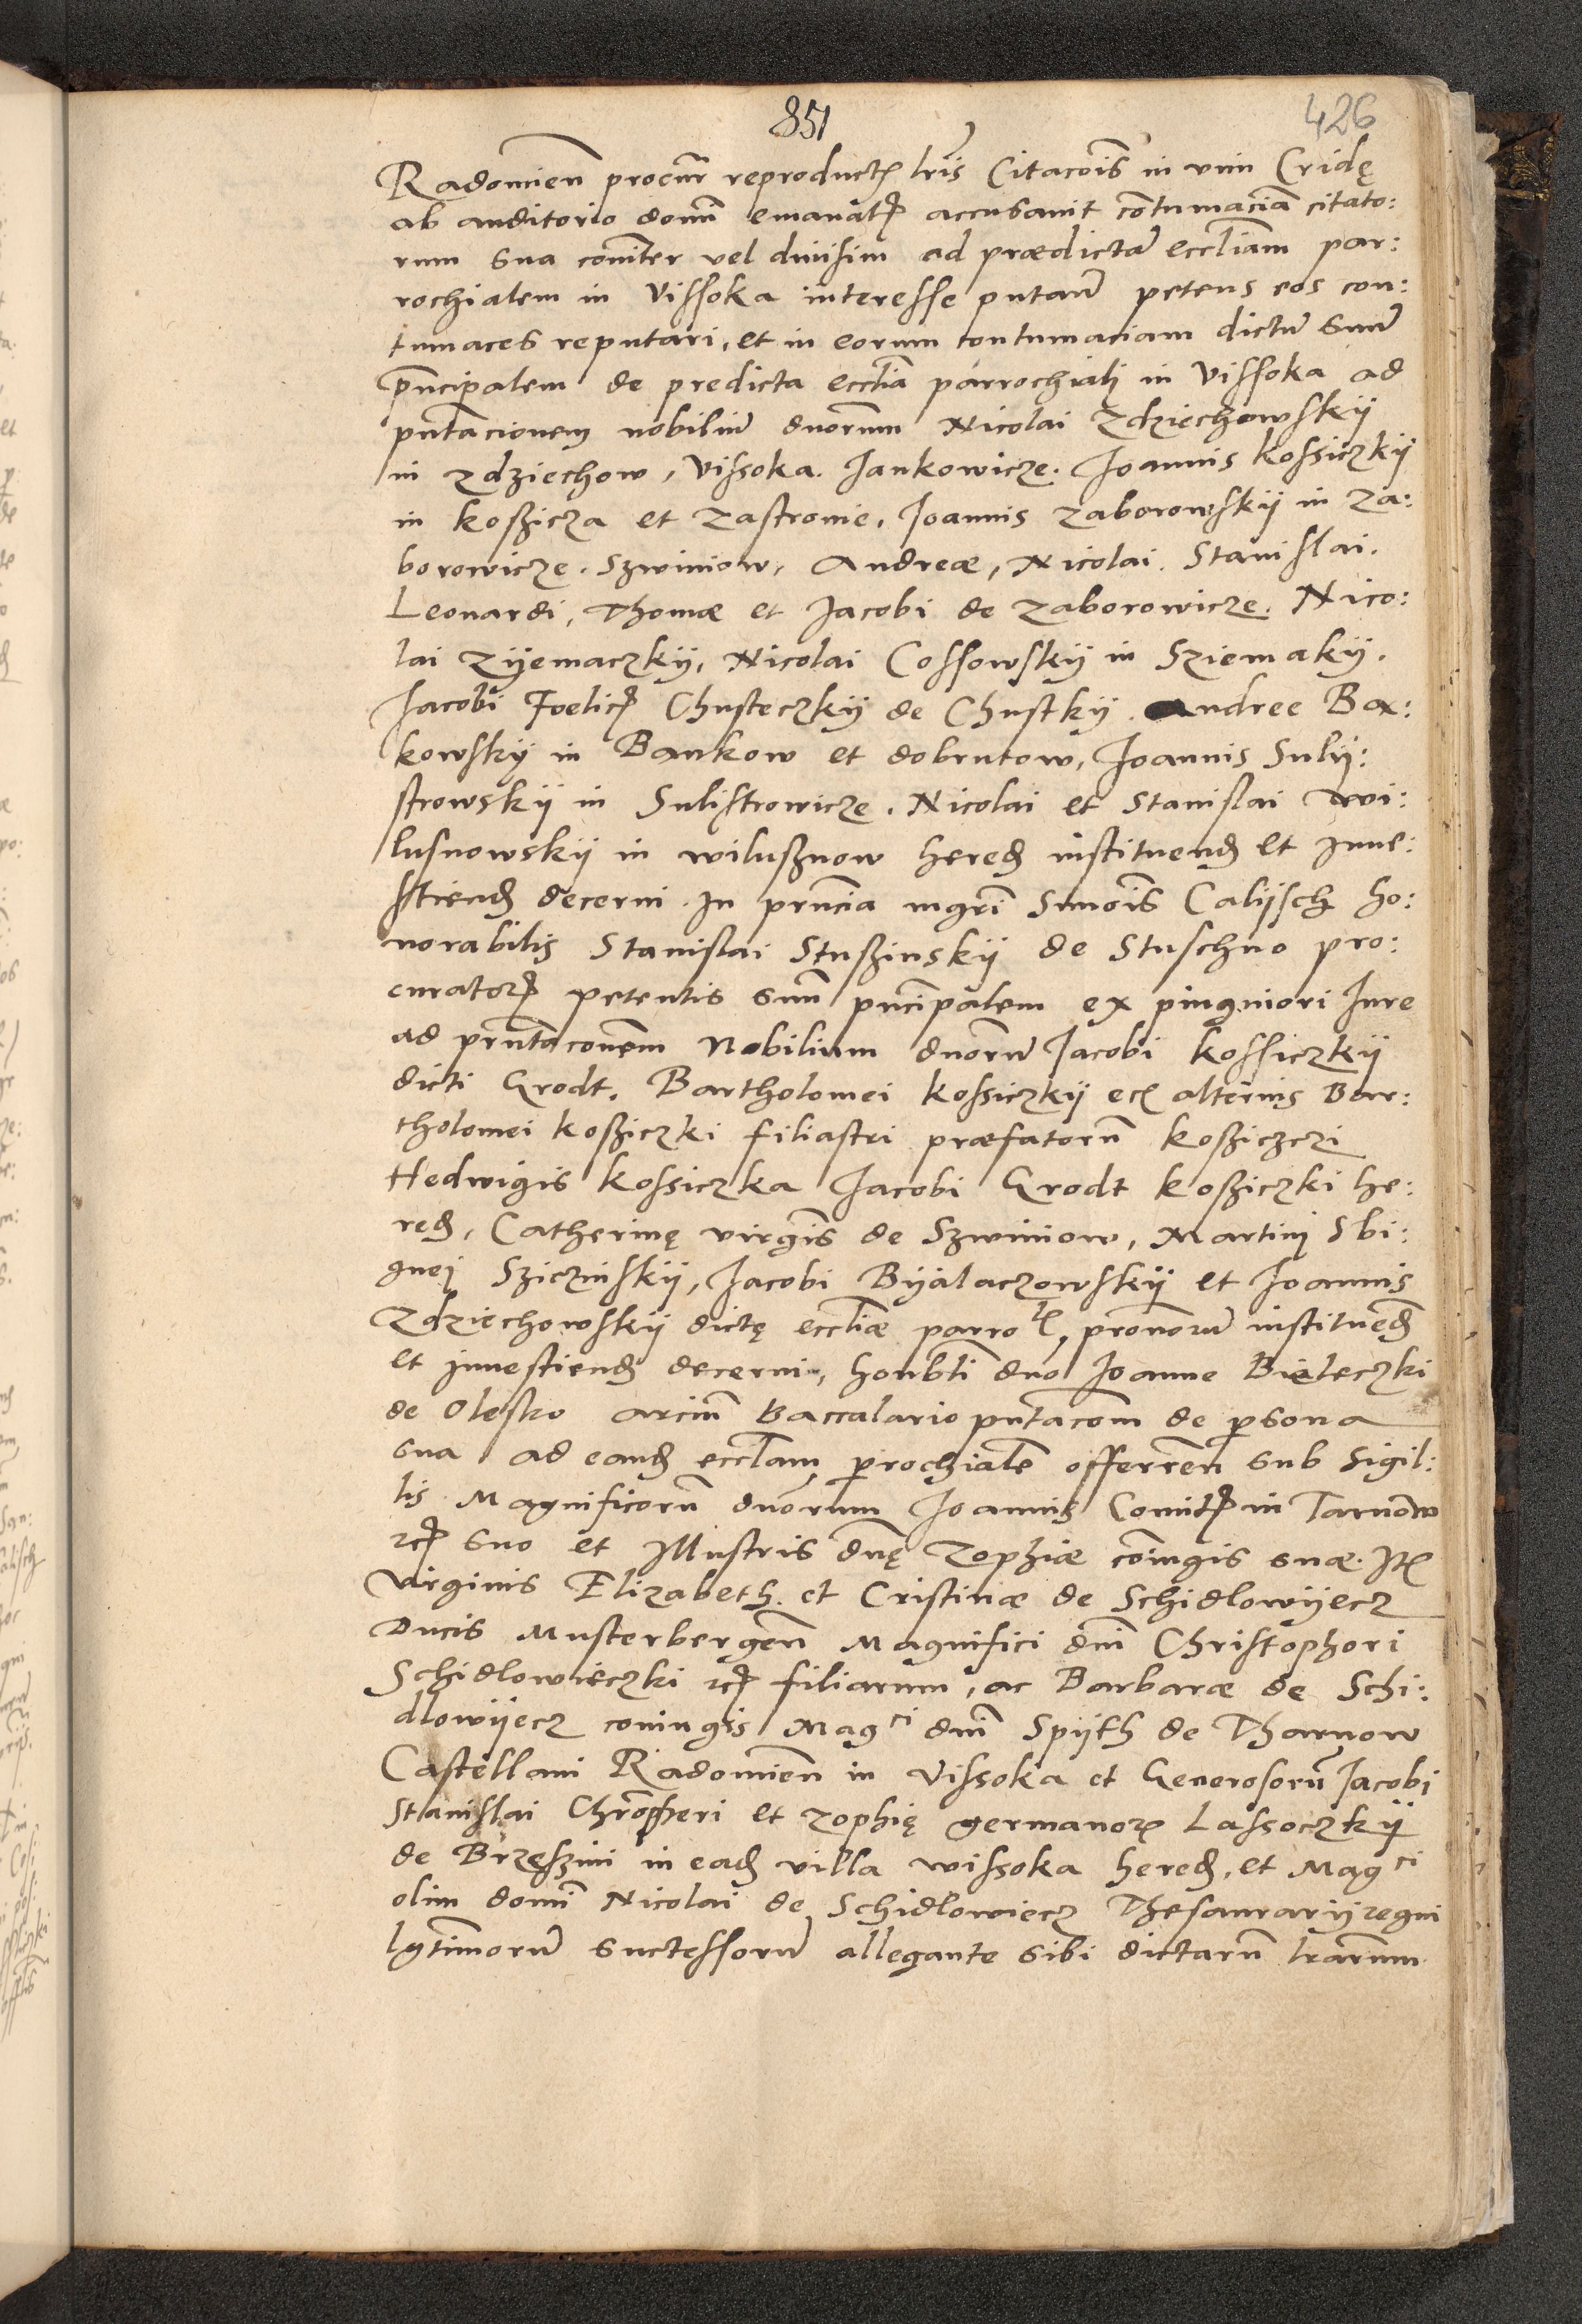 851
426
Radomien procur reproductis lris Citacois in vim Cridę
ab auditorio domi emanatis accusavit contumaciā citato:
rum sua comiter vel divisim ad prædictā eccliam par:
rochialem in Vissoka interesse putan̄ petens eos con:
tumaces reputari, et in eorum contumaciam dictū suū
pncipalem de predicta ecclia parrochialj in Vissoka ad
pntacionem nobiliū dnorum Nicolai Zdziechowskÿ
in Zdziechow, Vissoka. Jankowicze. Joannis Kossiczkÿ
in Koßicza et Zastronie, Joannis Zaborowskÿ in Za:
borowicze. Szwiniow, Andreæ, Nicolai. Stanislai.
Leonardi, Thomæ et Jacobi de Zaborowicze. Nico:
lai Zÿemaczkÿ, Nicolai Cossowskÿ in Sziemakÿ.
Jacobi Foelicis Chusteczkÿ de Chustkÿ. Andree Ba:
kowskÿ in Bankow et dobrutow, Joannis Sulÿ:
strowskÿ in Sulistrowicze. Nicolai et Stanislai Wi:
lusnowskÿ in Wilußnow hered instituend et inve:
stiend decerni. In pruncia mgri Simois Calÿsch ho:
norabilis Stanislai Stußinskÿ de Stuschno pro:
curatoris petentis suū pncipalem ex pinguiori Jure
ad prntaconem Nobilium dnorū Jacobi Kossiczkÿ
dicti Grodt. Bartholomei Kossiczkÿ eciam alterius Bar:
tholomei Koßiczki filiastri præfatorū Koßiczczi
Hedwigis Kossiczka Jacobi Grodt Koßiczki he:
red, Catherinę virginis de Szwiniow, Martinj Sbi:
gnej Sziczinskÿ, Jacobi Bÿalaczowskÿ et Joannis
Zdziechowskÿ dictę eccliæ parrolis pronorū instituend
et investiend decerni, honbli dno Joanne Bieleczki
de Olesko arciū Baccalario pntacom de psona
sua ad eand eccliam prochialē offerren sub sigil:
lis Magnificorū dnorum Joannis Comitis in Tarnow
etc suo et Illustris dnę Zophiæ coiugis suæ. Itē
virginis Elizabeth. et Cristinæ de Schidlowÿecz
Ducis Musterbergen Magnifici dni Christophori
Schidlowieczki etc filiarum, ac Barbaræ de Schi:
dlowÿecz coniugis Magci dni Spÿth de Tharnow
Castellani Radomien in Vissoka et Generosorū Jacobi
Stanislai Chroferi et Zophię germanorum Lassoczkÿ
de Brzeszini in ead villa Wissoka hered, et Magci
olim domi Nicolai de Schidlowiecz Thesaurarÿ regni
lgtimorū successorū allegante sibi dictarū lrarum